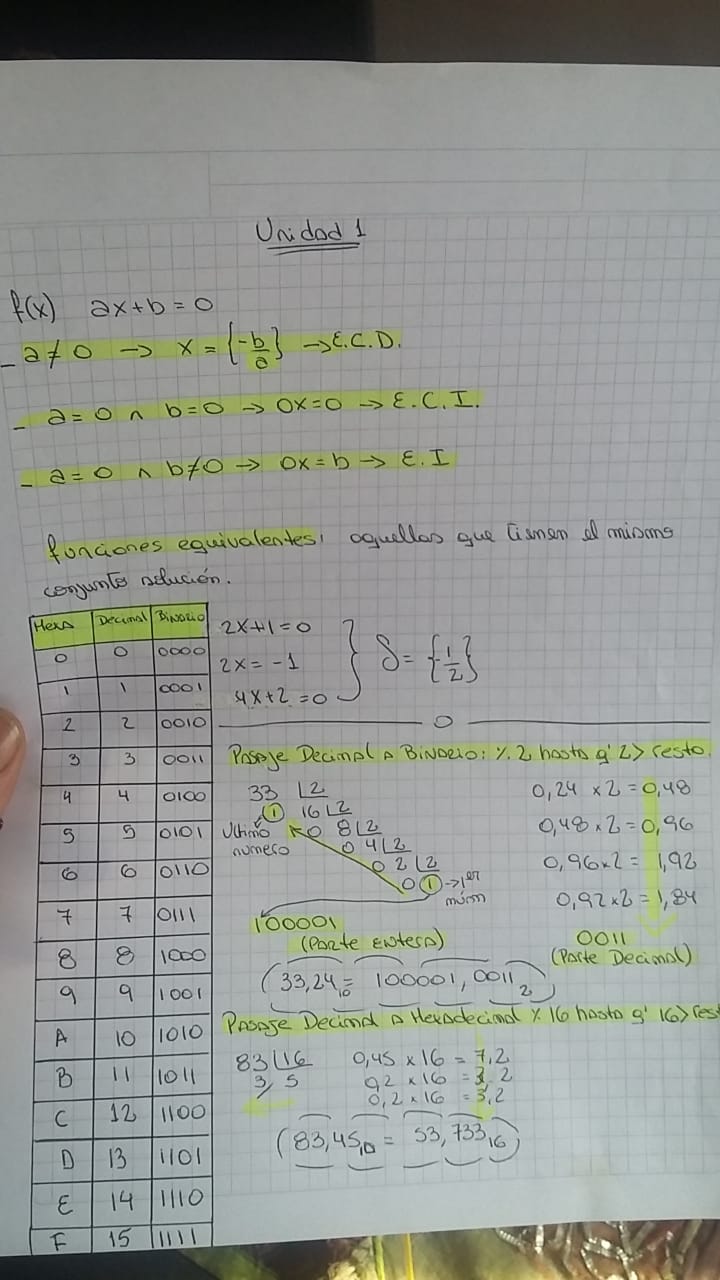 Unidad 1
f(x) ax+b=0
- a≠0 → x = {-b/a} → E.C.D.
- a=0 ∧ b=0 → 0x=0 → E.C.I.
- a=0 ∧ b≠0 → 0x=b → E.I
funciones equivalentes: aquellas que tienen el mismo
conjunto solución.
2x+1=0
2x=-1
4x+2=0
S={-1/2}
Hexa Decimal Binario
0 0 0000
1 1 0001
2 2 0010
3 3 0011
4 4 0100
5 5 0101
6 6 0110
7 7 0111
8 8 1000
9 9 1001
A 10 1010
B 11 1011
C 12 1100
D 13 1101
E 14 1110
F 15 1111
Pasaje Decimal a Binario: % 2 hasta q' 2> resto.
33 2
1 16 2
Ultimo 0 8 2
numero 0 4 2
0 2 2
0 1 → 1er
núm
100001
(Parte Entera)
0,24 x 2 = 0,48
0,48 x 2 = 0,96
0,96 x 2 = 1,92
0,92 x 2 = 1,84
0011
(Parte Decimal)
(33,24₁₀ = 100001,0011₂)
Pasaje Decimal a Hexadecimal % 16 hasta q' 16> rest
83 16
3 5
0,45 x 16 = 7,2
0,2 x 16 = 3,2
0,2 x 16 = 3,2
(83,45₁₀ = 53,733₁₆)